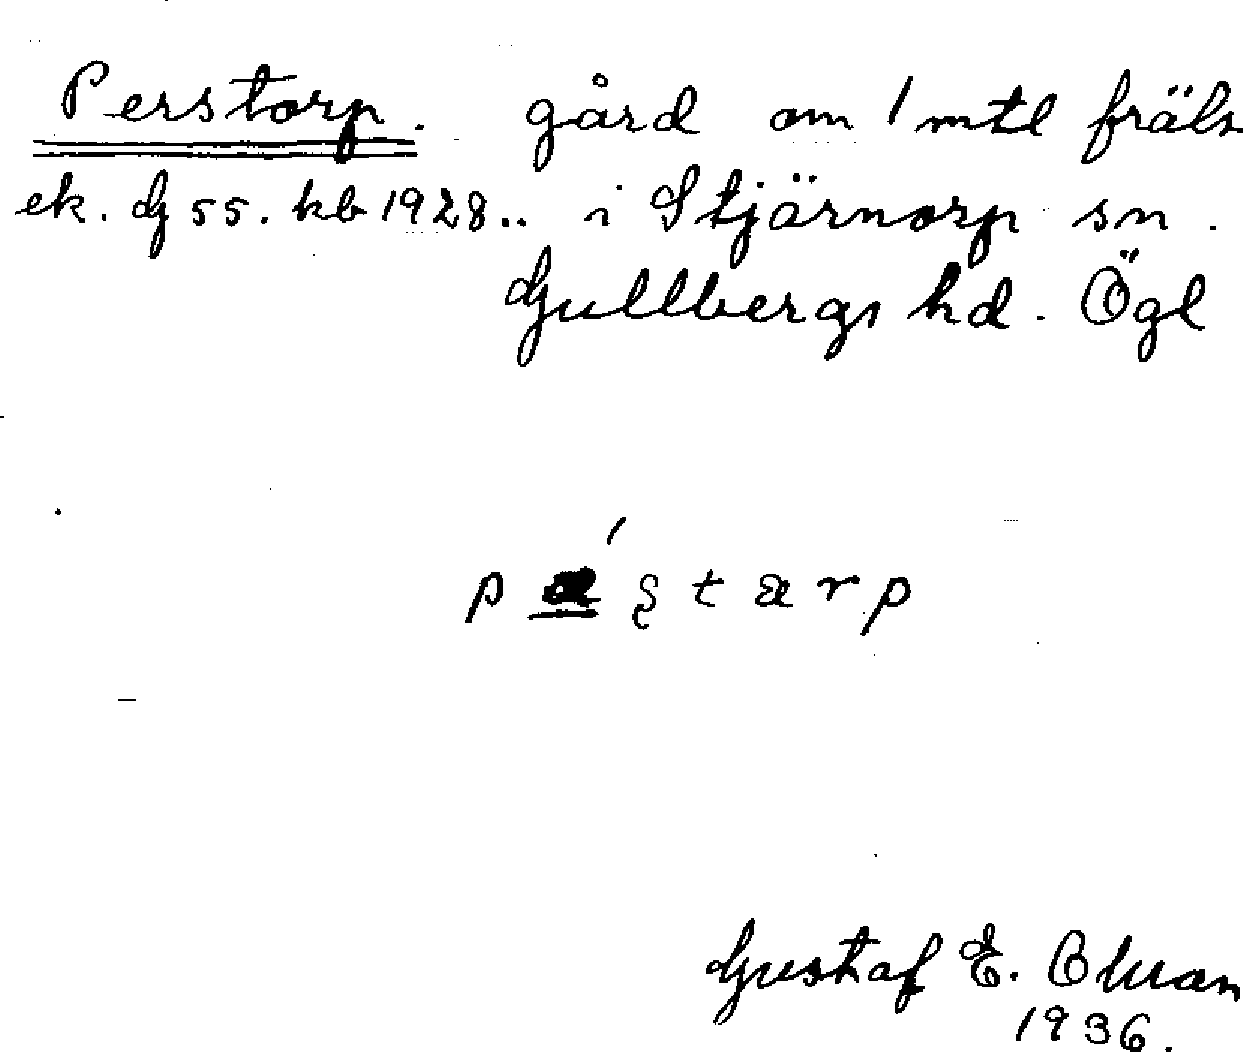 Perstorp. gård om 1 mtl fräls
ek. G 55. kb 1928.. i Stjärnorp sn.
Gullbergs hd. Ögl
Gustaf E.
1936.